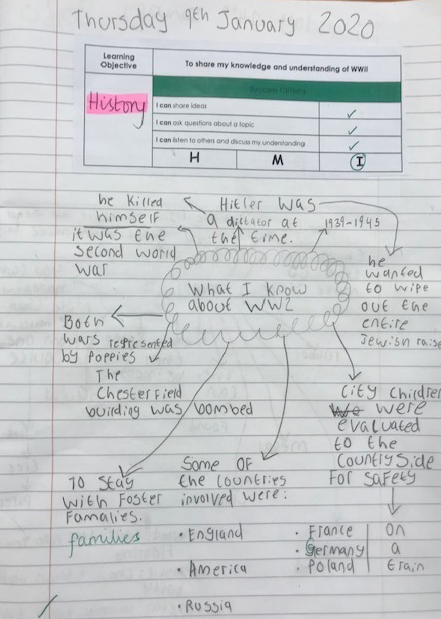 Thursday 9th January 2020
Learning Objective
To share my knowledge and understanding of WWII
History
Success Criteria
I can share ideas ✓
I can ask questions about a topic ✓
I can listen to others and discuss my understanding ✓
H M I
he killed
himself
Hitler was
a dictator at
the time.
1939-1945
it was the
second world
war
he
wanted
to wipe
out the
entire
Jewish raise
What I know
about WW2
Both
wars represented
by Poppies
The
Chesterfield
building was bombed
City Children
We were
evaluated
to the
Country Side
For Safety
on
a
train
To Stay
with Foster
Famalies.
families
Some OF
the countries
involved were:
• England
• America
• Russia
• France
• Germany
• Poland